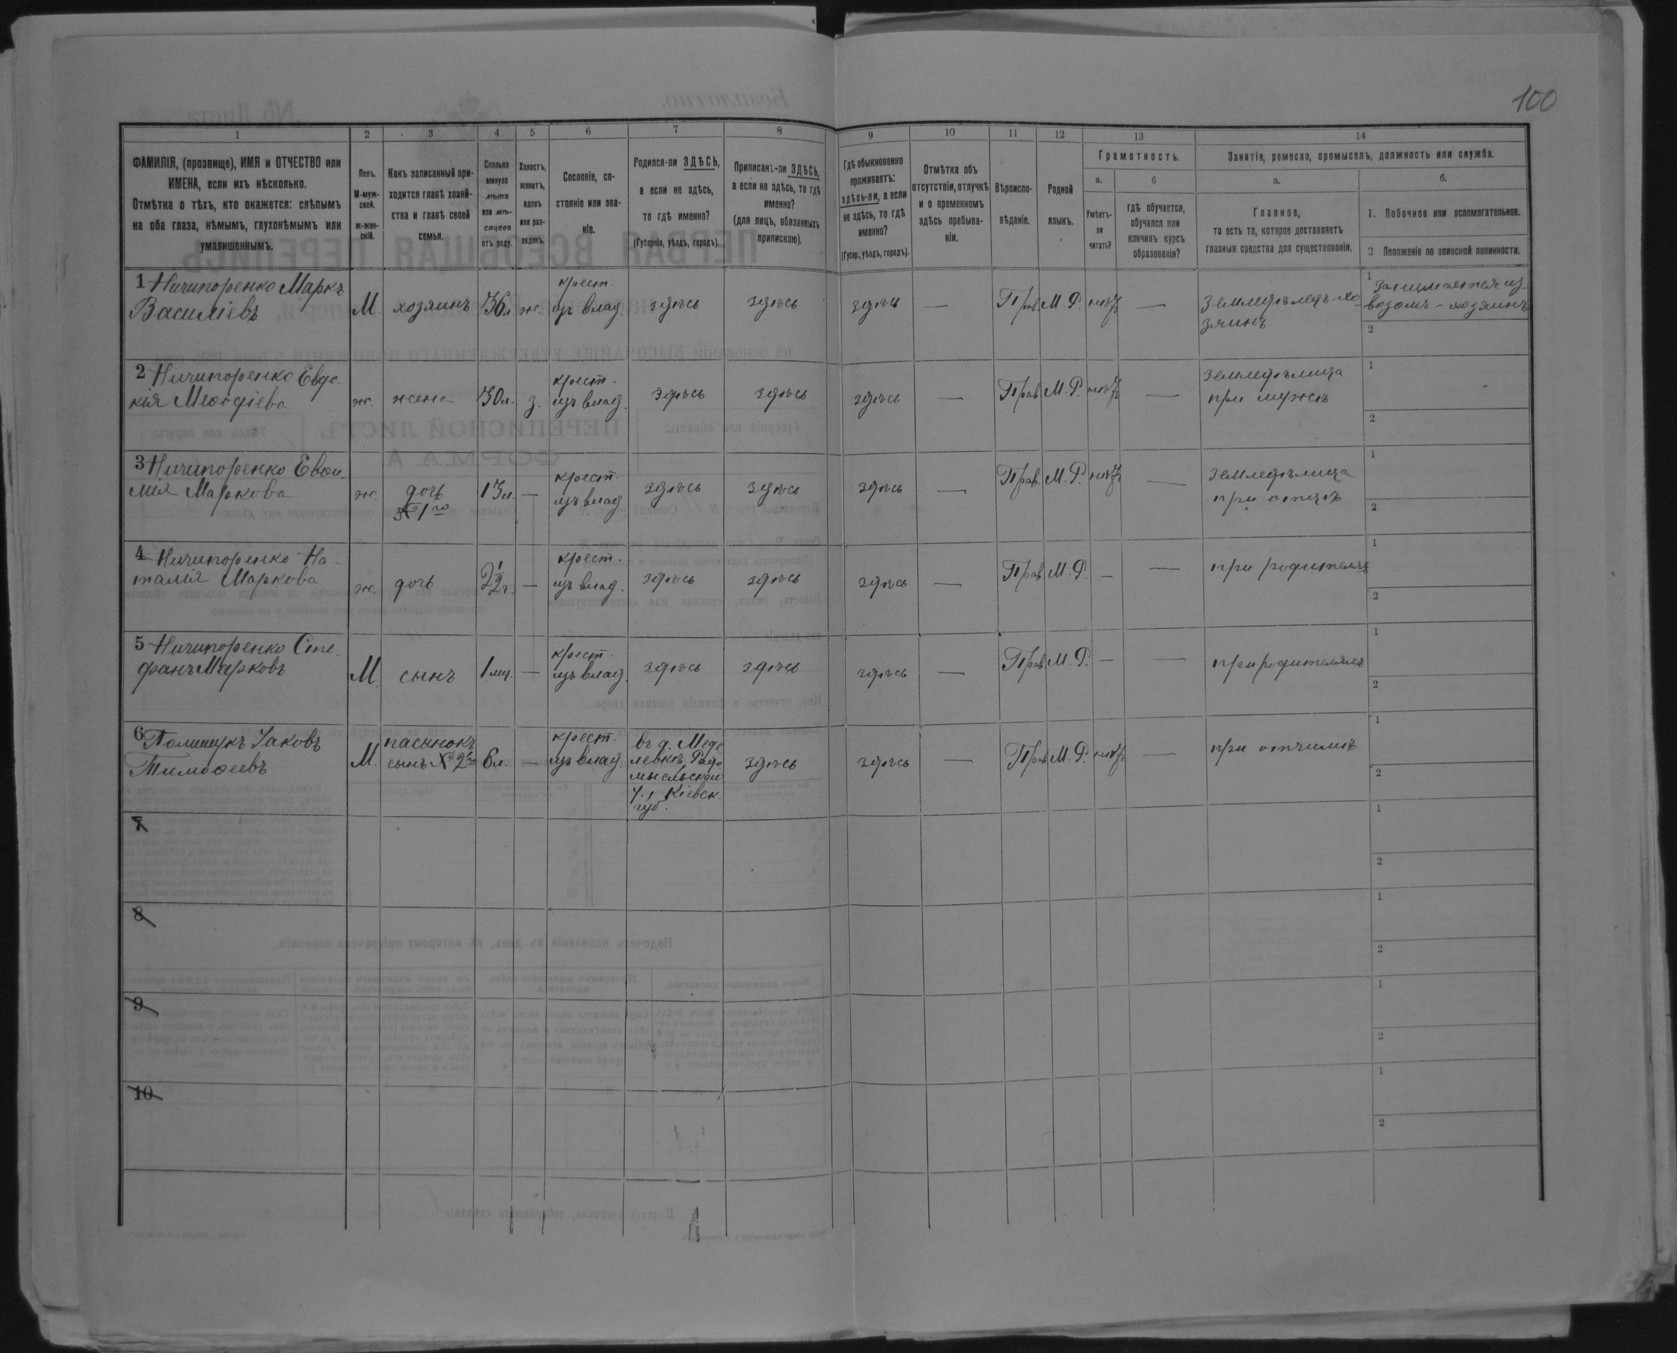 100
1
2
3
4
5
6
7
8
9
10
11
12
13
14
ФАМИЛІЯ, (прозвище), ИМЯ и ОТЧЕСТВО или
ИМЕНА, если ихъ нѣсколько.
Отмѣтка о тѣхъ, кто окажется: слѣпымъ
на оба глаза, нѣмымъ, глухонѣмымъ или
умалишеннымъ.
Полъ.
М-муж-
ской.
ж-жен-
скій.
Какъ записанный при-
ходится главѣ хозяй-
ства и главѣ своей
семьи.
Сколько
минуло
лѣтъ
или мѣ-
сяцевъ
отъ роду.
Холостъ,
женатъ,
вдовъ
или раз-
веденъ.
Сословіе, со-
стояніе или зва-
ніе.
Родился-ли ЗДѢСЬ,
а если не здѣсь,
то гдѣ именно?
(Губернія, уѣздъ, городъ).
Приписанъ-ли ЗДѢСЬ,
а если не здѣсь, то гдѣ
именно?
(для лицъ, обязанныхъ
припискою).
Гдѣ обыкновенно
проживаетъ:
здѣсь-ли, а если
не здѣсь, то гдѣ
именно?
(Губер., уѣздъ, городъ).
Отмѣтка объ
отсутствіи, отлучкѣ
и о временномъ
здѣсь пребыва-
ніи.
Вѣроиспо-
вѣданіе.
Родной
языкъ.
Грамотность.
а.
б
Умѣетъ-
ли
читать?
гдѣ обучается,
обучался или
кончилъ курсъ
образованія?
Занятіе, ремесло, промыселъ, должность или служба.
а.
б.
Главное,
то есть то, которое доставляетъ
главныя средства для существованія.
1. Побочное или вспомогательное.
2 Положеніе по воинской повинности.
1 Ничипоренко Маркъ
Василіевъ
М.
хозяинъ
36 л.
ж.
крест.
изъ влад.
здѣсь
здѣсь
здѣсь
—
Прав.
М.Р.
нѣтъ
—
земледѣлецъ-хо
зяинъ
1 занимается из
возомъ - хозяинъ
2
2 Ничипоренко Евдо-
кія Меѳодіева
ж.
жена
30 л.
з.
крест.
изъ влад.
здѣсь
здѣсь
здѣсь
—
Прав.
М.Р.
нѣтъ
—
земледѣлица
при мужѣ
1
2
3 Ничипоренко Евѳи-
мія Маркова
ж.
дочь
№ 1го
13 л.
—
крест.
изъ влад.
здѣсь
здѣсь
здѣсь
—
Прав.
М.Р.
нѣтъ
—
земледѣлица
при отцѣ
1
2
4 Ничипоренко На-
талія Маркова
ж.
дочь
2½ г.
—
крест.
изъ влад.
здѣсь
здѣсь
здѣсь
—
Прав.
М.Р.
—
—
при родителяхъ
1
2
5 Ничипоренко Сте-
фанъ Марковъ
М.
сынъ
1 мц.
—
крест.
изъ влад.
здѣсь
здѣсь
здѣсь
—
Прав.
М.Р.
—
—
при родителяхъ
1
2
6 Полищукъ Іаковъ
Тимоѳеевъ
М.
пасынокъ
сынъ № 2го
6 л.
—
крест.
изъ влад.
въ д. Меде
левкѣ, Радо
мысльскаго
у., Кіевск.
губ.
здѣсь
здѣсь
—
Прав.
М.Р.
нѣтъ
—
при отчимѣ
1
2
7
1
2
8
1
2
9
1
2
10
1
2